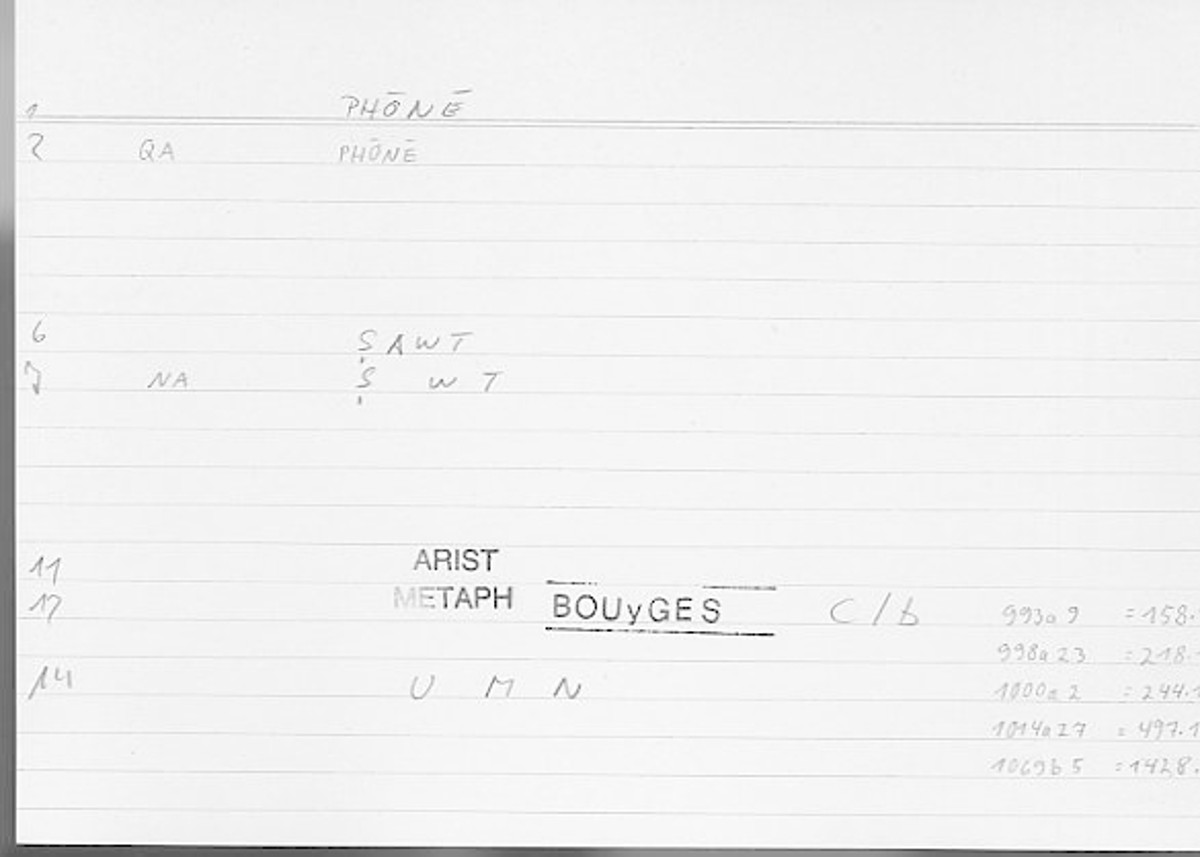 1 PHŌNĒ
2 QA PHŌNĒ
6 ṢAWT
7 NA Ṣ W T
11 ARIST
12 METAPH BOUyGES C/b 993a9 =158.
998a23 =218.
14 U M N 1000a2 =244.1
1014a27 =497.1
1069b5 =1428.